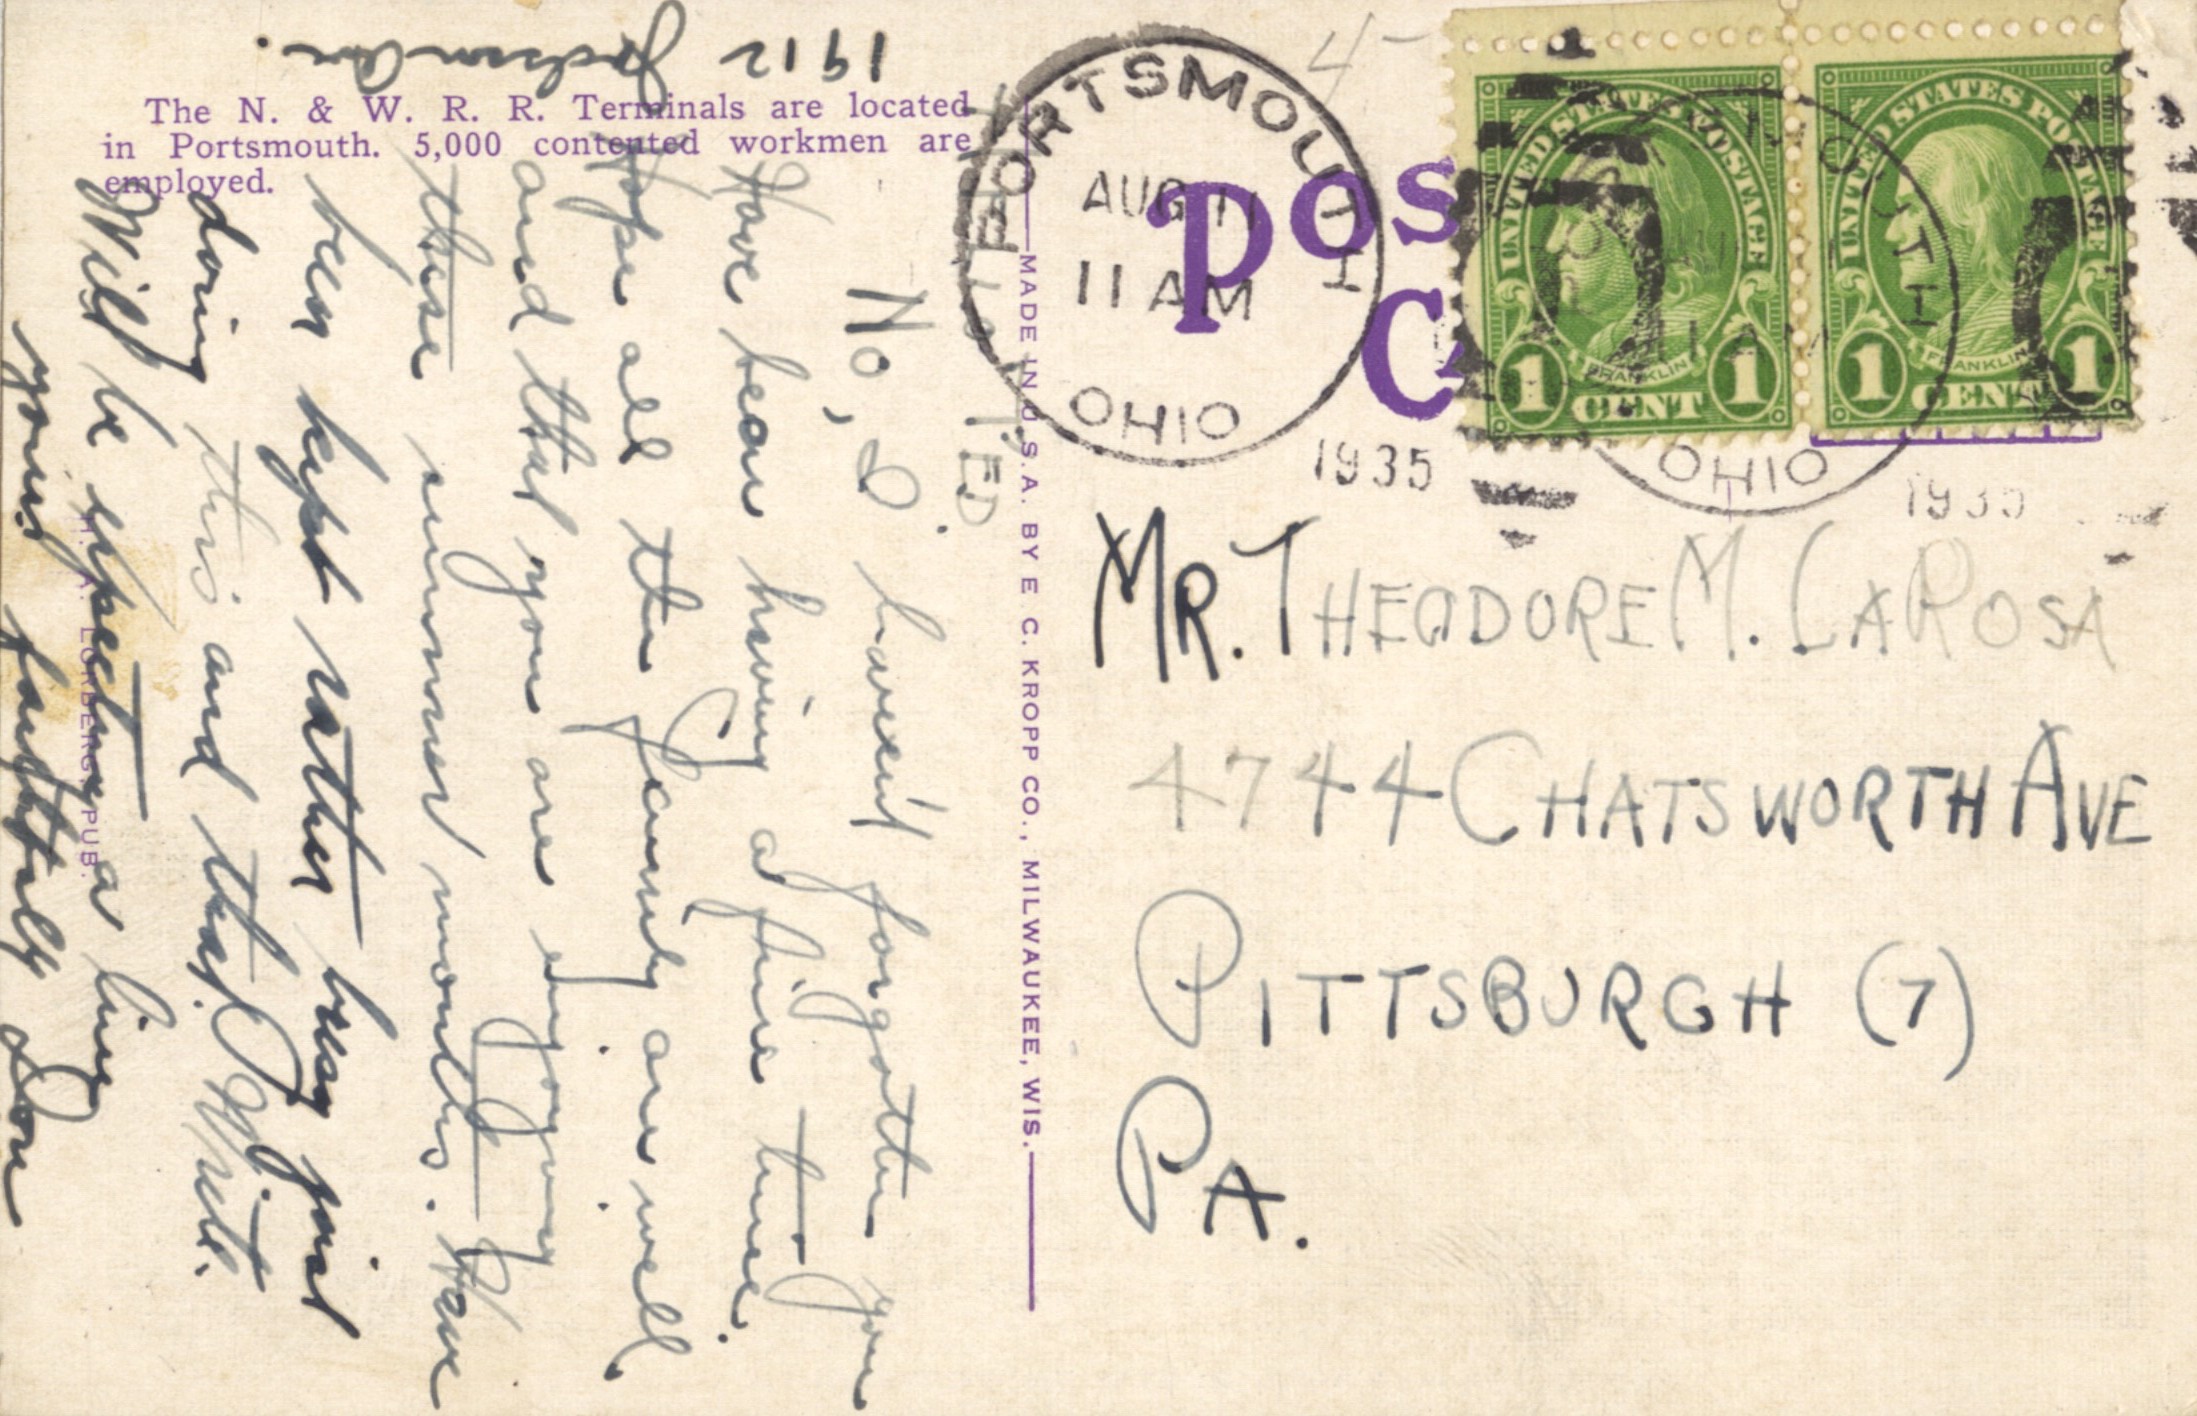 1912 Jackson Ave.
The N. & W. R. R. Terminals are located
in Portsmouth. 5,000 contented workmen are
employed.
HELLO TED
No, I haven't forgotten you
Have been having a fine time.
Hope all the family are well
and that you are enjoying
these summer months. I have
been kept rather busy just
doing this and that. Write.
Will be expecting a line
yours faithfully Don
H. A. LORBERG, PUB.
MADE IN U.S.A. BY E. C. KROPP CO., MILWAUKEE, WIS.
PORTSMOUTH
AUG 11
11 AM
OHIO
1935
4-
POS
CA
UNITED STATES POSTAGE
FRANKLIN
1 CENT 1
UNITED STATES POSTAGE
FRANKLIN
1 CENT 1
MOUTH
11 AM
OHIO
1935
MR. THEODORE M. LAROSA
4744 CHATSWORTH AVE
PITTSBURGH (7)
PA.